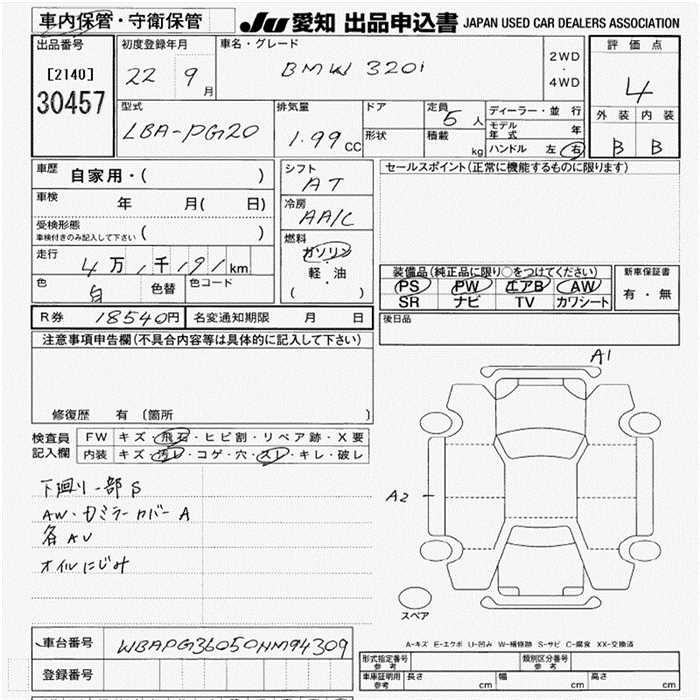 車内保管・守衛保管
JU 愛知 出品申込書 JAPAN USED CAR DEALERS ASSOCIATION
出品番号
[2140]
30457
初度登録年月
22 9 月
車名・グレード
BMW 320i
2WD
・
4WD
評価点
4
外装 内装
B B
型式
LBA-PG20
排気量
1.99 CC
ドア
形状
定員
5 人
積載
kg
ディーラー・並行
モデル年式 年
ハンドル 左 右
車歴
自家用・( )
車検
年 月( 日)
受検形態
車検付きのみ記入して下さい ( )
走行
4万,千191km
色
白
色替
色コード
シフト
AT
冷房
AA/C
燃料
ガソリン
・
軽・油
( )
セールスポイント(正常に機能するものに限ります)
装備品(純正品に限り○をつけてください)
PS PW エアB AW
SR ナビ TV カワシート
新車保証書
有・無
R券 18540円 名変通知期限 月 日
後日品
注意事項申告欄(不具合内容等は具体的に記入して下さい)
修復歴 有 〔箇所 〕
検査員
記入欄
FW キズ・飛石・ヒビ割・リペア跡・X要
内装 キズ・汚レ・コゲ・穴・スレ・キレ・破レ
下廻り一部S
AW・カミラーカバーA
各AU
オイルにじみ
A1
A2
スペア
A-キズ E-エクボ U-凹み W-補修跡 S-サビ C-腐食 XX-交換済
車台番号 WBAPG36050NM94309
登録番号
型式指定番号
参考
類別区分番号
参考
車庫証明用
参考
長さ cm 幅 cm 高さ cm